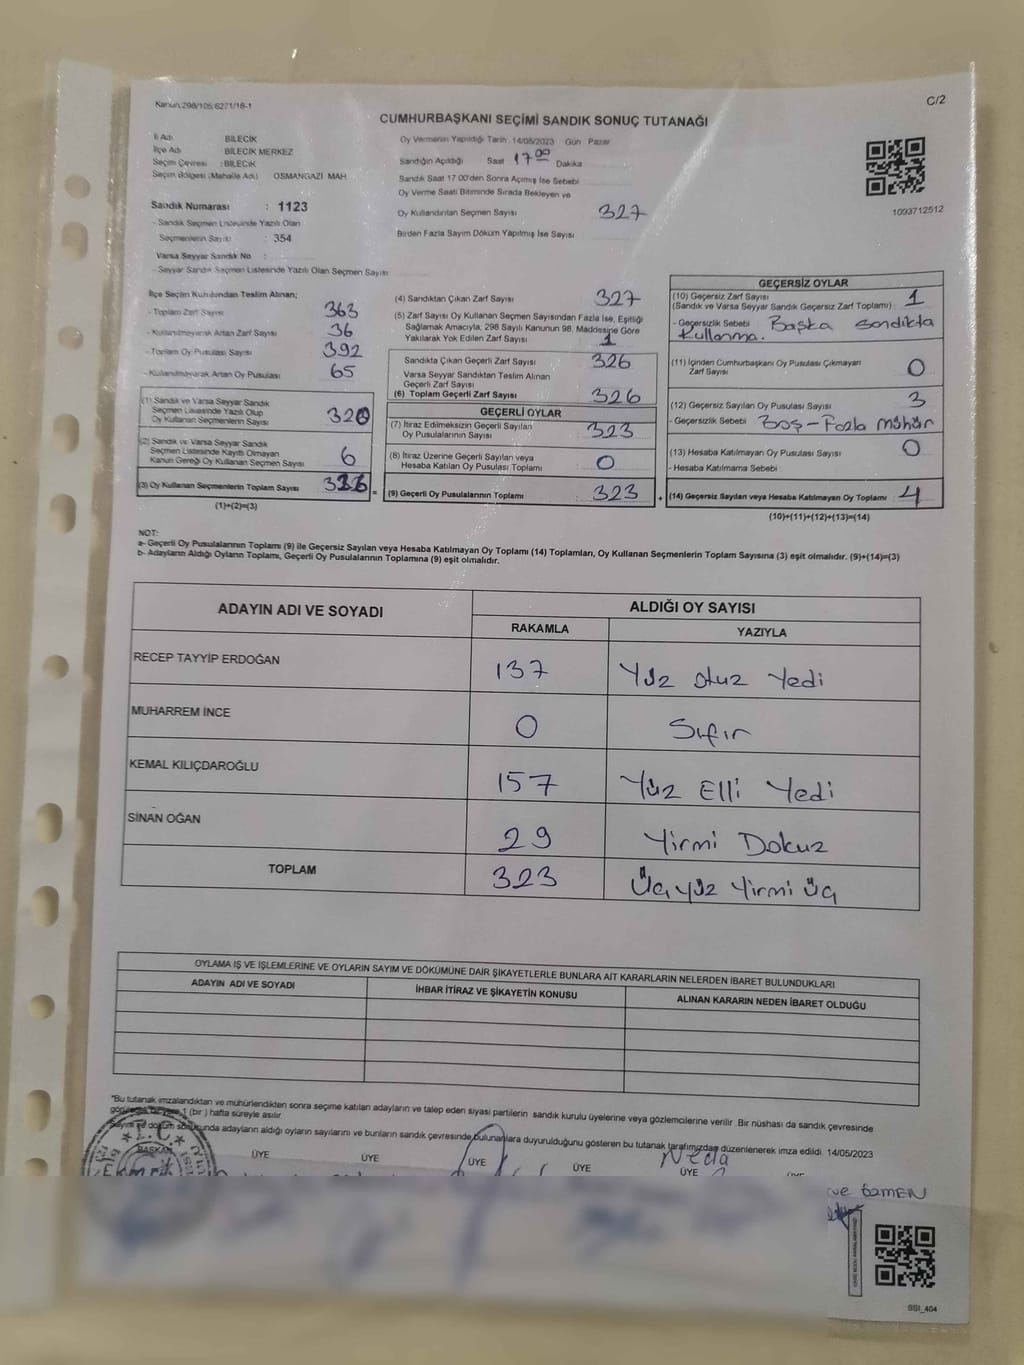 Kanun:298/105;6271/18-1
C/2
CUMHURBAŞKANI SEÇİMİ SANDIK SONUÇ TUTANAĞI
İl Adı BİLECİK
İlçe Adı BİLECİK MERKEZ
Seçim Çevresi : BİLECİK
Seçim Bölgesi (Mahalle Adı) OSMANGAZİ MAH
Sandık Numarası : 1123
- Sandık Seçmen Listesinde Yazılı Olan
Seçmenlerin Sayısı : 354
Varsa Seyyar Sandık No
- Seyyar Sandık Seçmen Listesinde Yazılı Olan Seçmen Sayısı
Oy Vermenin Yapıldığı Tarih : 14/05/2023 Gün : Pazar
Sandığın Açıldığı Saat 17 00 Dakika
Sandık Saat 17:00'den Sonra Açılmış İse Sebebi
Oy Verme Saati Bitiminde Sırada Bekleyen ve
Oy Kullandırılan Seçmen Sayısı 327
Birden Fazla Sayım Döküm Yapılmış İse Sayısı
1093712512
İlçe Seçim Kurulundan Teslim Alınan;
- Toplam Zarf Sayısı 363
- Kullanılmayarak Artan Zarf Sayısı 36
- Toplam Oy Pusulası Sayısı 392
- Kullanılmayarak Artan Oy Pusulası 65
(1) Sandık ve Varsa Seyyar Sandık
Seçmen Listesinde Yazılı Olup
Oy Kullanan Seçmenlerin Sayısı 320
(2) Sandık ve Varsa Seyyar Sandık
Seçmen Listesinde Kayıtlı Olmayan
Kanun Gereği Oy Kullanan Seçmen Sayısı 6
(3) Oy Kullanan Seçmenlerin Toplam Sayısı 326
(1)+(2)=(3)
(4) Sandıktan Çıkan Zarf Sayısı 327
(5) Zarf Sayısı Oy Kullanan Seçmen Sayısından Fazla İse, Eşitliği
Sağlamak Amacıyla, 298 Sayılı Kanunun 98. Maddesine Göre
Yakılarak Yok Edilen Zarf Sayısı 1
Sandıkta Çıkan Geçerli Zarf Sayısı 326
Varsa Seyyar Sandıktan Teslim Alınan
Geçerli Zarf Sayısı
(6) Toplam Geçerli Zarf Sayısı 326
GEÇERLİ OYLAR
(7) İtiraz Edilmeksizin Geçerli Sayılan
Oy Pusulalarının Sayısı 323
(8) İtiraz Üzerine Geçerli Sayılan veya
Hesaba Katılan Oy Pusulası Toplamı 0
= (9) Geçerli Oy Pusulalarının Toplamı : 323 +
GEÇERSİZ OYLAR
(10) Geçersiz Zarf Sayısı 1
(Sandık ve Varsa Seyyar Sandık Geçersiz Zarf Toplamı)
- Geçersizlik Sebebi Başka sandıkta
Kullanma.
(11) İçinden Cumhurbaşkanı Oy Pusulası Çıkmayan
Zarf Sayısı 0
(12) Geçersiz Sayılan Oy Pusulası Sayısı 3
- Geçersizlik Sebebi Boş - Fazla Mühür
(13) Hesaba Katılmayan Oy Pusulası Sayısı 0
- Hesaba Katılmama Sebebi
(14) Geçersiz Sayılan veya Hesaba Katılmayan Oy Toplamı : 4
(10)+(11)+(12)+(13)=(14)
NOT:
a- Geçerli Oy Pusulalarının Toplamı (9) ile Geçersiz Sayılan veya Hesaba Katılmayan Oy Toplamı (14) Toplamları, Oy Kullanan Seçmenlerin Toplam Sayısına (3) eşit olmalıdır. (9)+(14)=(3)
b- Adayların Aldığı Oyların Toplamı, Geçerli Oy Pusulalarının Toplamına (9) eşit olmalıdır.
ADAYIN ADI VE SOYADI
ALDIĞI OY SAYISI
RAKAMLA YAZIYLA
RECEP TAYYİP ERDOĞAN 137 Yüz otuz Yedi
MUHARREM İNCE 0 Sıfır
KEMAL KILIÇDAROĞLU 157 Yüz Elli Yedi
SİNAN OĞAN 29 Yirmi Dokuz
TOPLAM 323 Üç yüz Yirmi üç
OYLAMA İŞ VE İŞLEMLERİNE VE OYLARIN SAYIM VE DÖKÜMÜNE DAİR ŞİKAYETLERLE BUNLARA AİT KARARLARIN NELERDEN İBARET BULUNDUKLARI
ADAYIN ADI VE SOYADI İHBAR İTİRAZ VE ŞİKAYETİN KONUSU ALINAN KARARIN NEDEN İBARET OLDUĞU
*Bu tutanak imzalandıktan ve mühürlendikten sonra seçime katılan adayların ve talep eden siyasi partilerin sandık kurulu üyelerine veya gözlemcilerine verilir .Bir nüshası da sandık çevresinde
1 (bir ) hafta süreyle asılır.
Sayım ve döküm adayların aldığı oyların sayılarını ve bunların sandık çevresinde bulunanlara duyurulduğunu gösteren bu tutanak tarafımızdan düzenlenerek imza edildi. 14/05/2023
T.C.
BAŞKAN ÜYE ÜYE ÜYE ÜYE ÜYE
Neda
ÖZMEN
SSI_404